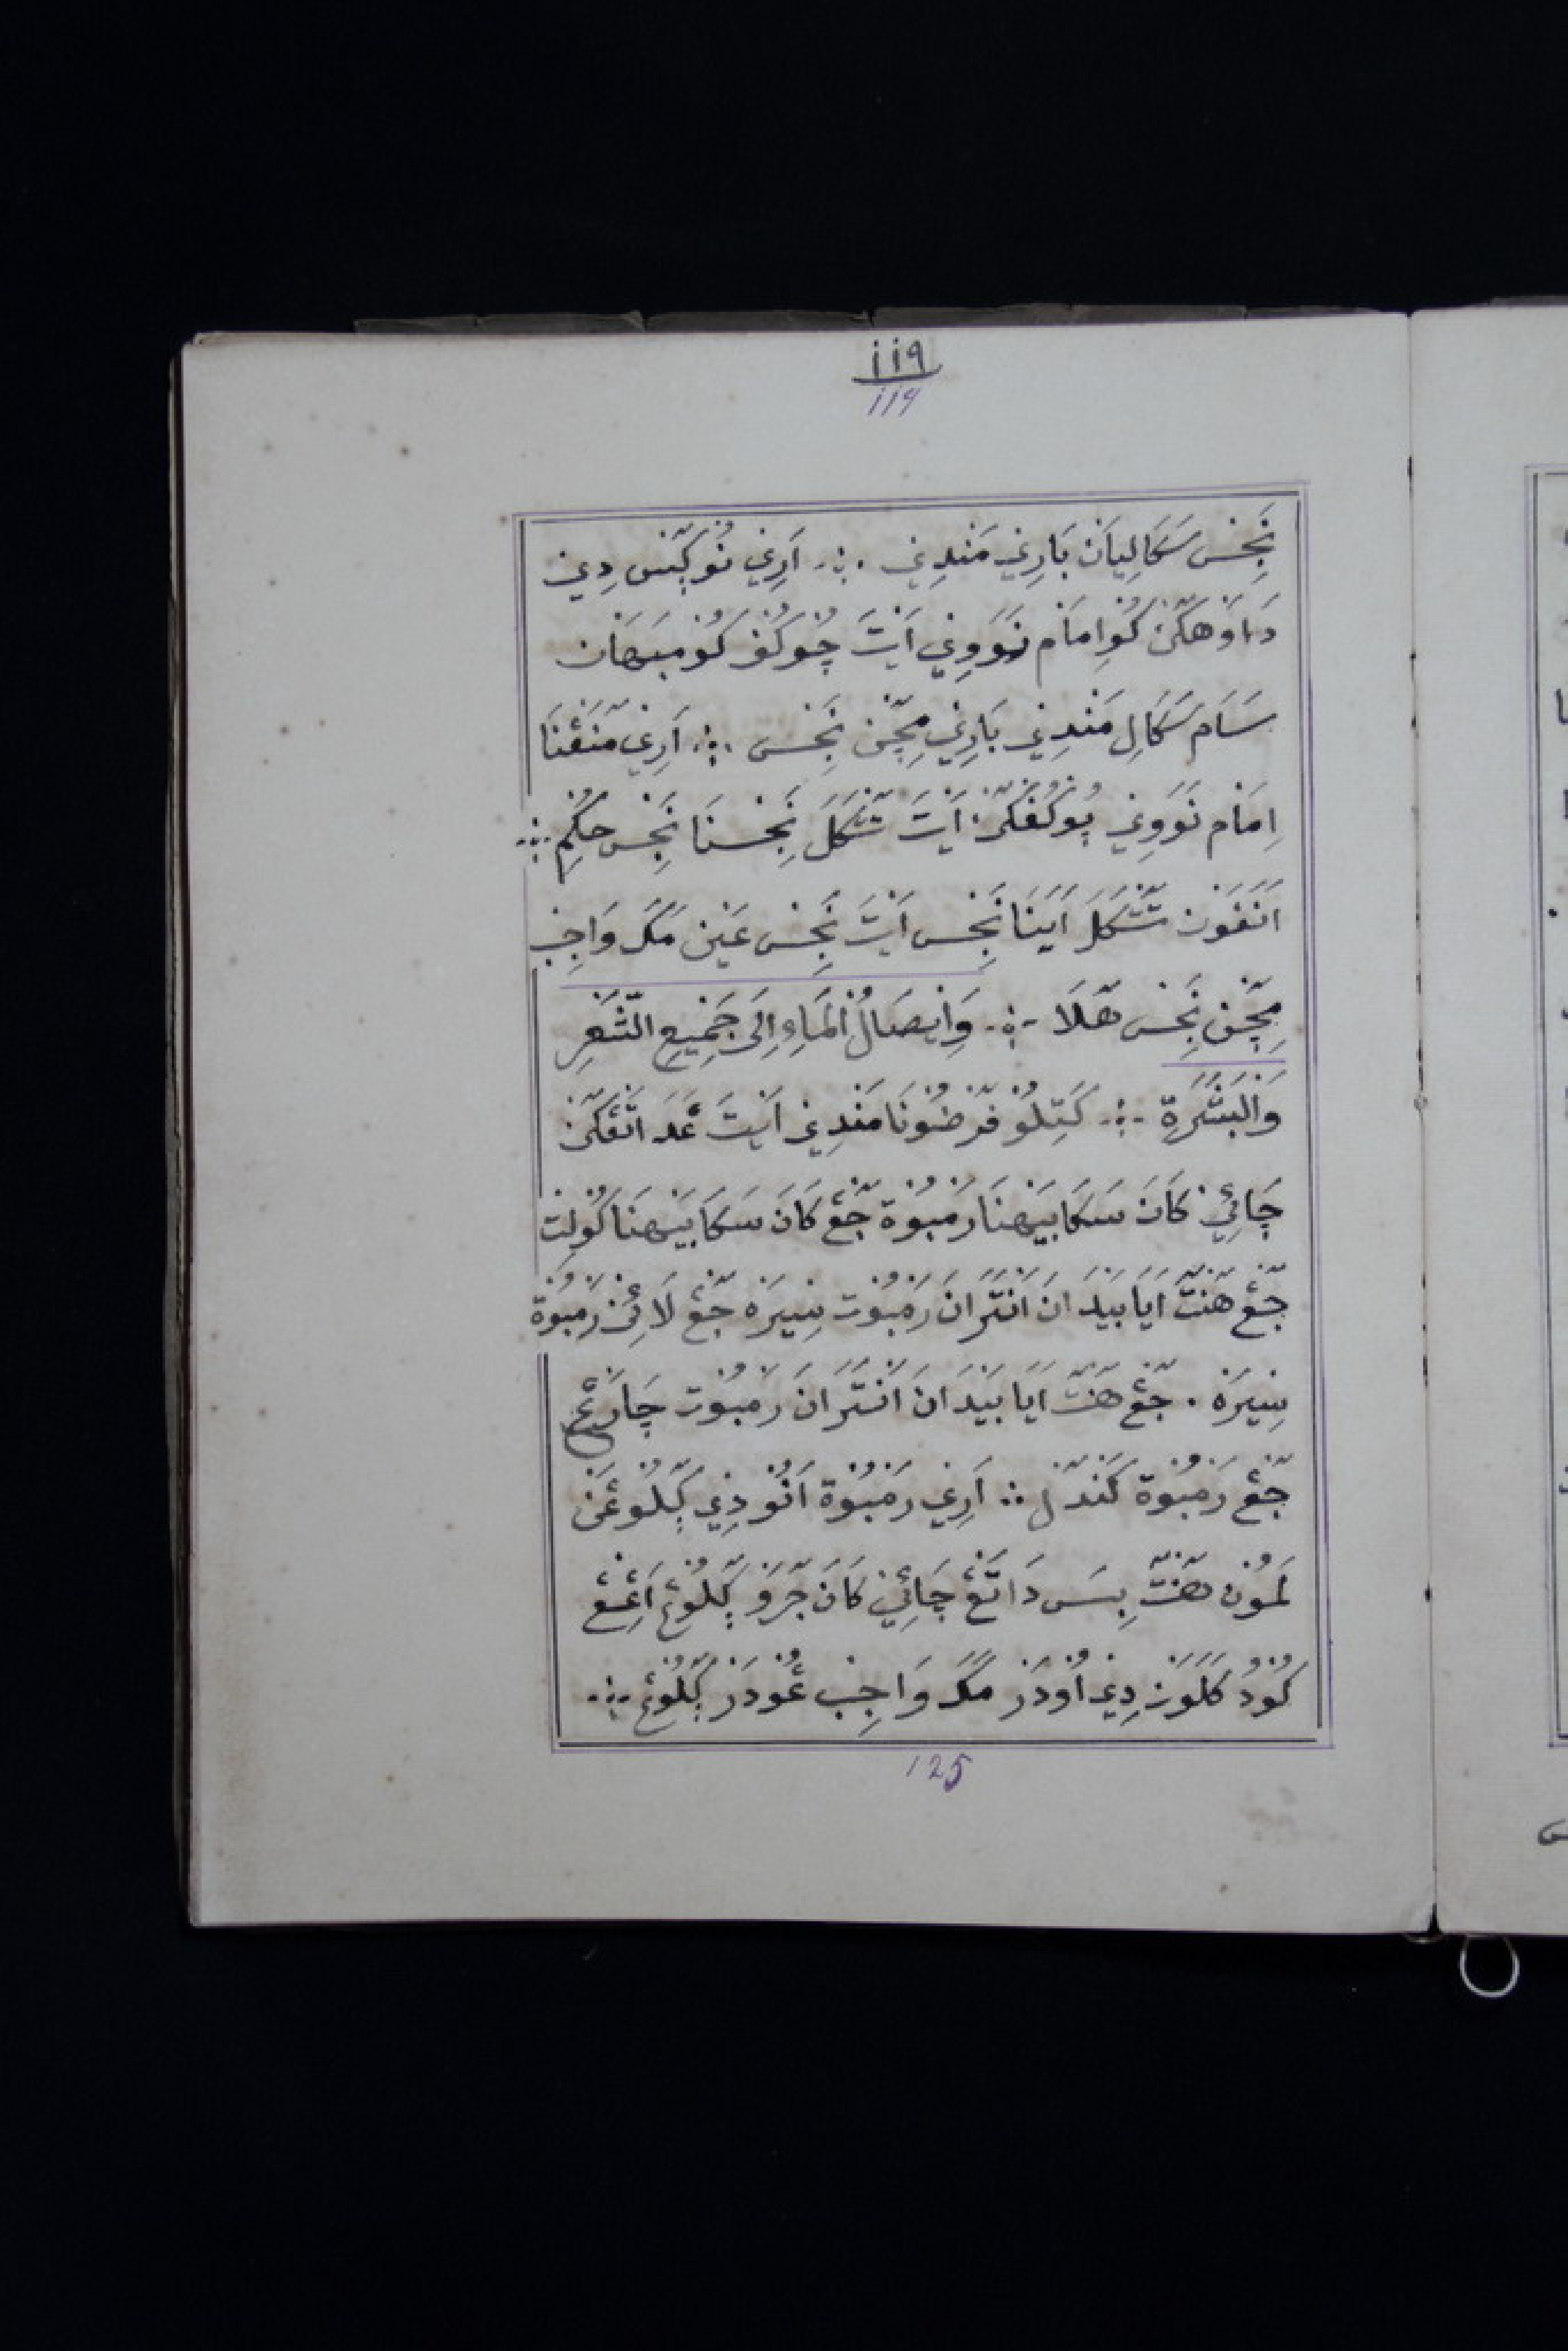 ١١٩
119
نَجِسْ سَكَالِيَانْ بَارِيْ مَنْدِيْ ؞ اَرِيْ نُوْكَڤَسْ دِيْ
دَاوَهَكَنْ كُوْ اِمَامْ نَوَوِيْ اَيْتَ چُوْكُفْ كُوْمْبَهَانْ
سَسَامْ سَكَالِ مَنْدِيْ بَارِيْ مِچَنْ نَجِسْ ؞ اَرِيْ مَنَڠْنَا
اِمَامْ نَوَوِيْ بُوْكُفَكَنْ اَيْتَ تَتْكَلَ نَجِسْنَا نَجِسْ حُكْمِ ؞
اَنَفَوْنْ تَتْكَلَ اَيَنَا نَجِسْ اَيْتَ نَجِسْ عَيْنْ مَكَ وَاجِبْ
مِچَنْ نَجِسْ هَلَا ؞ وَاِيْصَالُ الْمَاءِ اِلَى جَمِيْعِ الشَّعْرِ
وَالْبَشَرَةِ ؞ كَتِلُوْ فَرْضُوْنَا مَنْدِيْ اَيْتَ عَدَ اَتَڠْكَنْ
چَائِيْ كَانَ سَكَابَيْهْنَا رَمْبُوْة جَڠْ كَانَ سَكَابَيْهْنَا كُوْلِتْ
جَڠْ هَنْتَ اَيَا بَيْدَانَ اَنْتَرَانَ رَمْبُوْت سِيْرَهْ جَڠْ لَائِنْ رَمْبُوْة
سِيْرَهْ . جَڠْ هَنْتَ اَيَا بَيْدَانَ اَنْتَرَانَ رَمْبُوْت چَارَڠْ
جَڠْ رَمْبُوْة كَنْدَلْ ؞ اَرِيْ رَمْبُوْة اَنُوْ دِيْ ݢَلُوْڠَنْ
لَمُوْنْ هَنْتَ بِسَ دَاتَڠْ چَائِيْ كَانَ جَرَوْ ݢَلُوْڠْ اَڠِڠْ
كُوْدُ كَلَوَنْ دِيْ اُوْدَرْ مَكَ وَاجِبْ ڠُوْدَرْ ݢَلُوْڠْ ؞
125